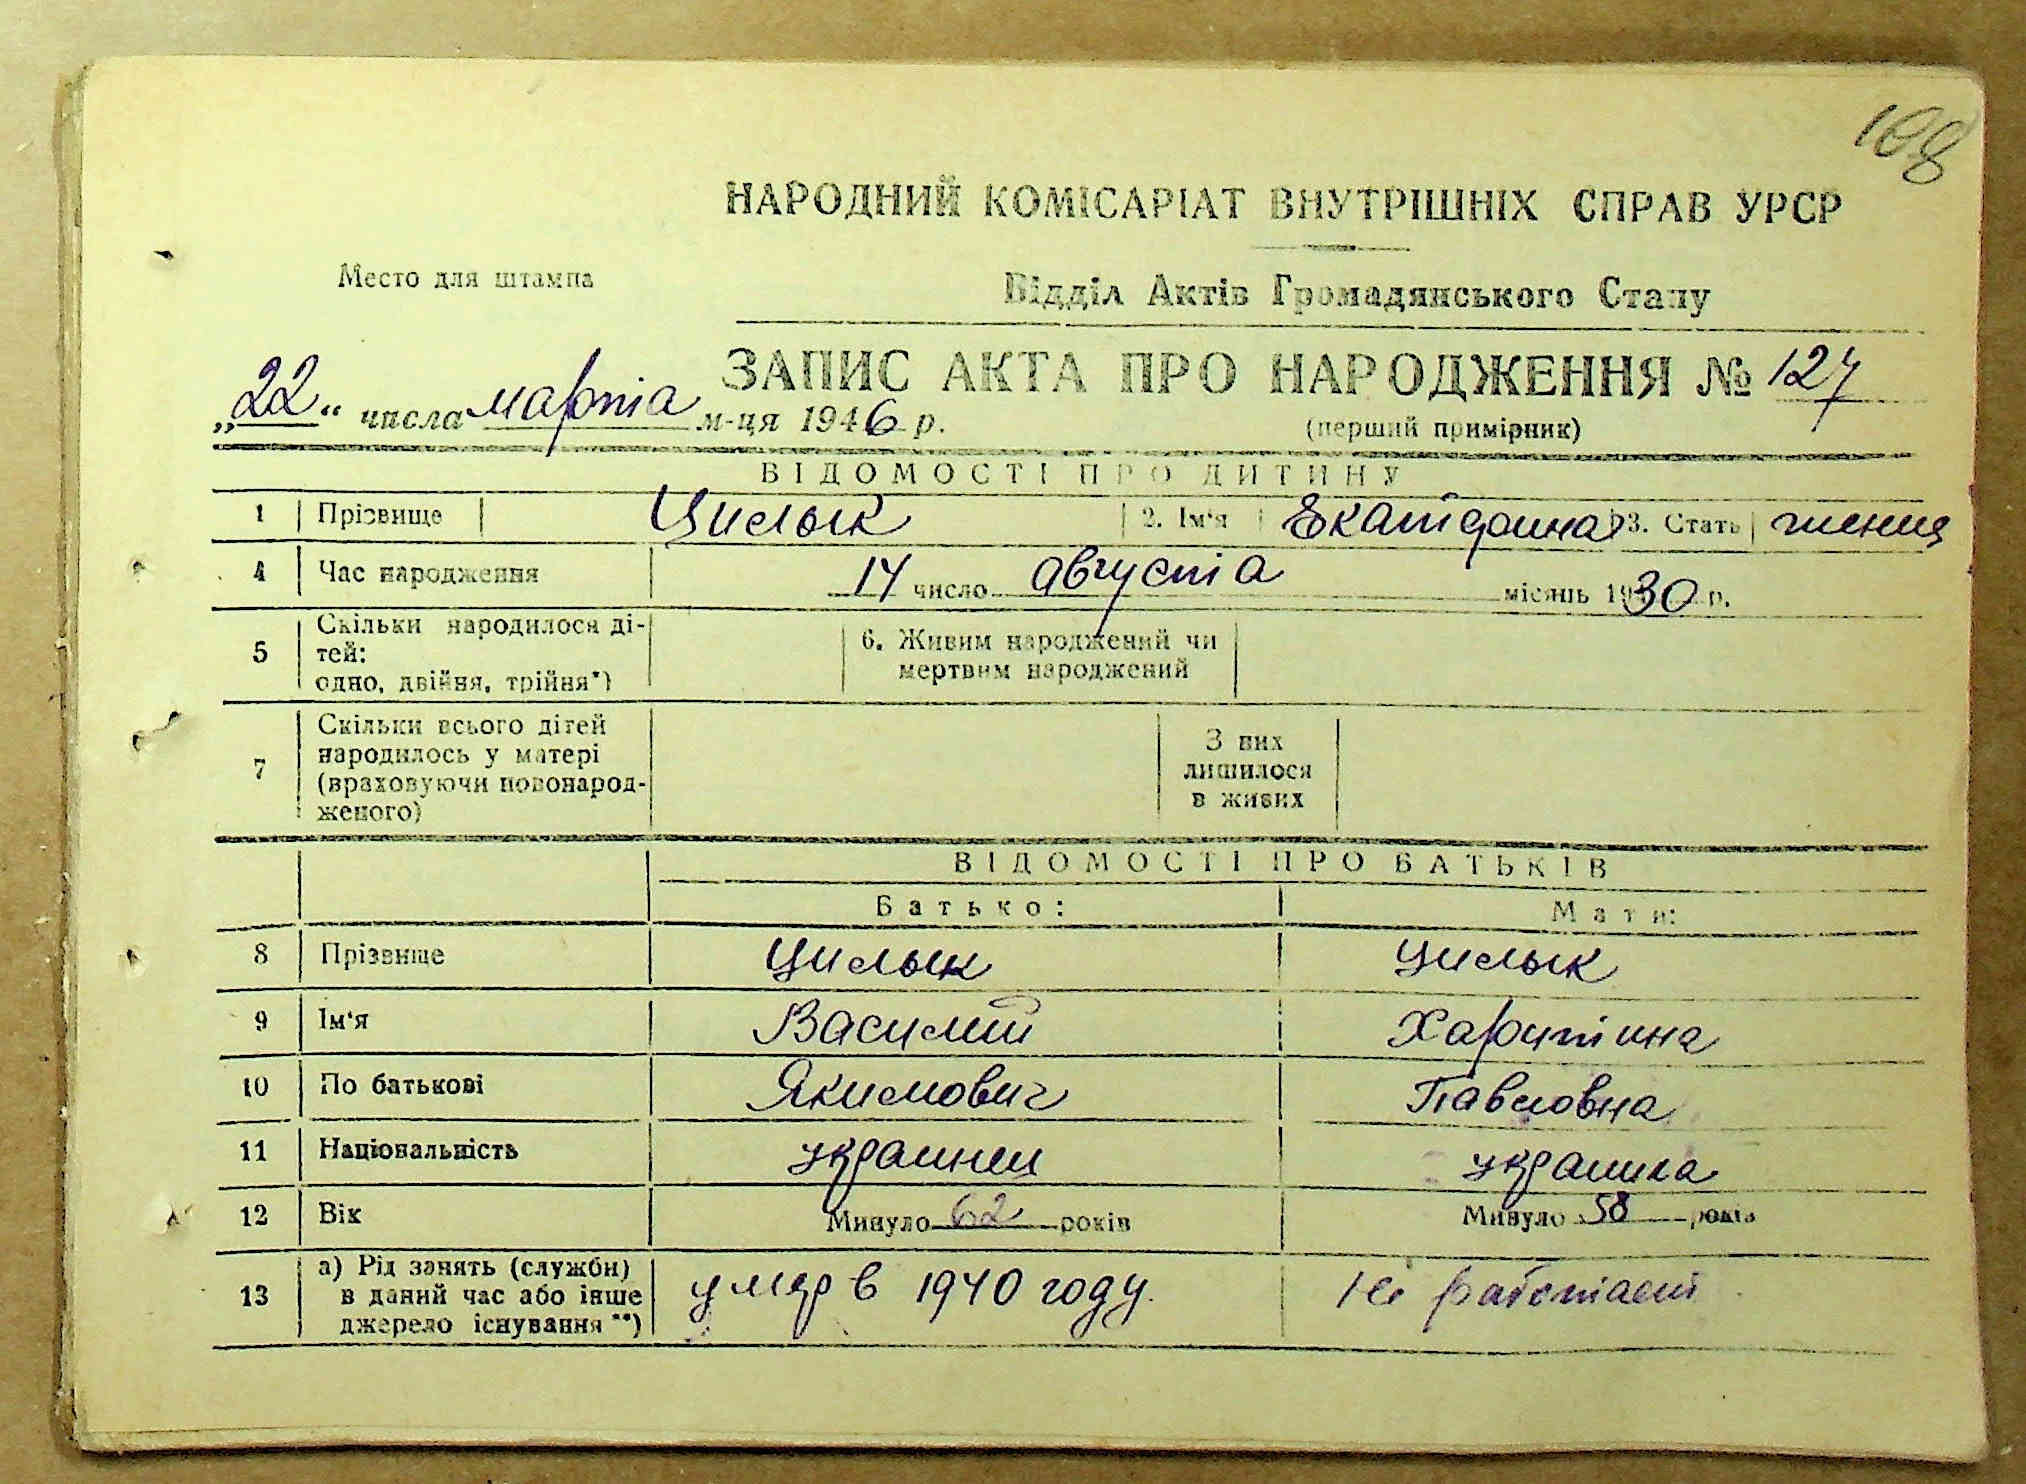 108
НАРОДНИЙ КОМІСАРІАТ ВНУТРІШНІХ СПРАВ УРСР
Место для штампа
Відділ Актів Громадянського Стану
ЗАПИС АКТА ПРО НАРОДЖЕННЯ № 127
„22“ числа марта м-ця 1946 р.
(перший примірник)
ВІДОМОСТІ ПРО ДИТИНУ
1 Прізвище Цилык 2. Ім'я Екатерина 3. Стать женск
4 Час народження 14 число августа місяць 1930 р.
5 Скільки народилося ді-
тей:
одно, двійня, трійня*)
6. Живим народжений чи
мертвим народжений
7 Скільки всього дітей
народилось у матері
(враховуючи новонарод-
женого)
З них
лишилося
в живих
ВІДОМОСТІ ПРО БАТЬКІВ
Батько: Мати:
8 Прізвище Цилык Цилык
9 Ім'я Василий Харитина
10 По батькові Якимович Павловна
11 Національність украинец украинка
12 Вік Минуло 62 років Минуло 58 років
13 а) Рід занять (служби)
в даний час або інше
джерело існування **)
умер в 1940 году. не работает